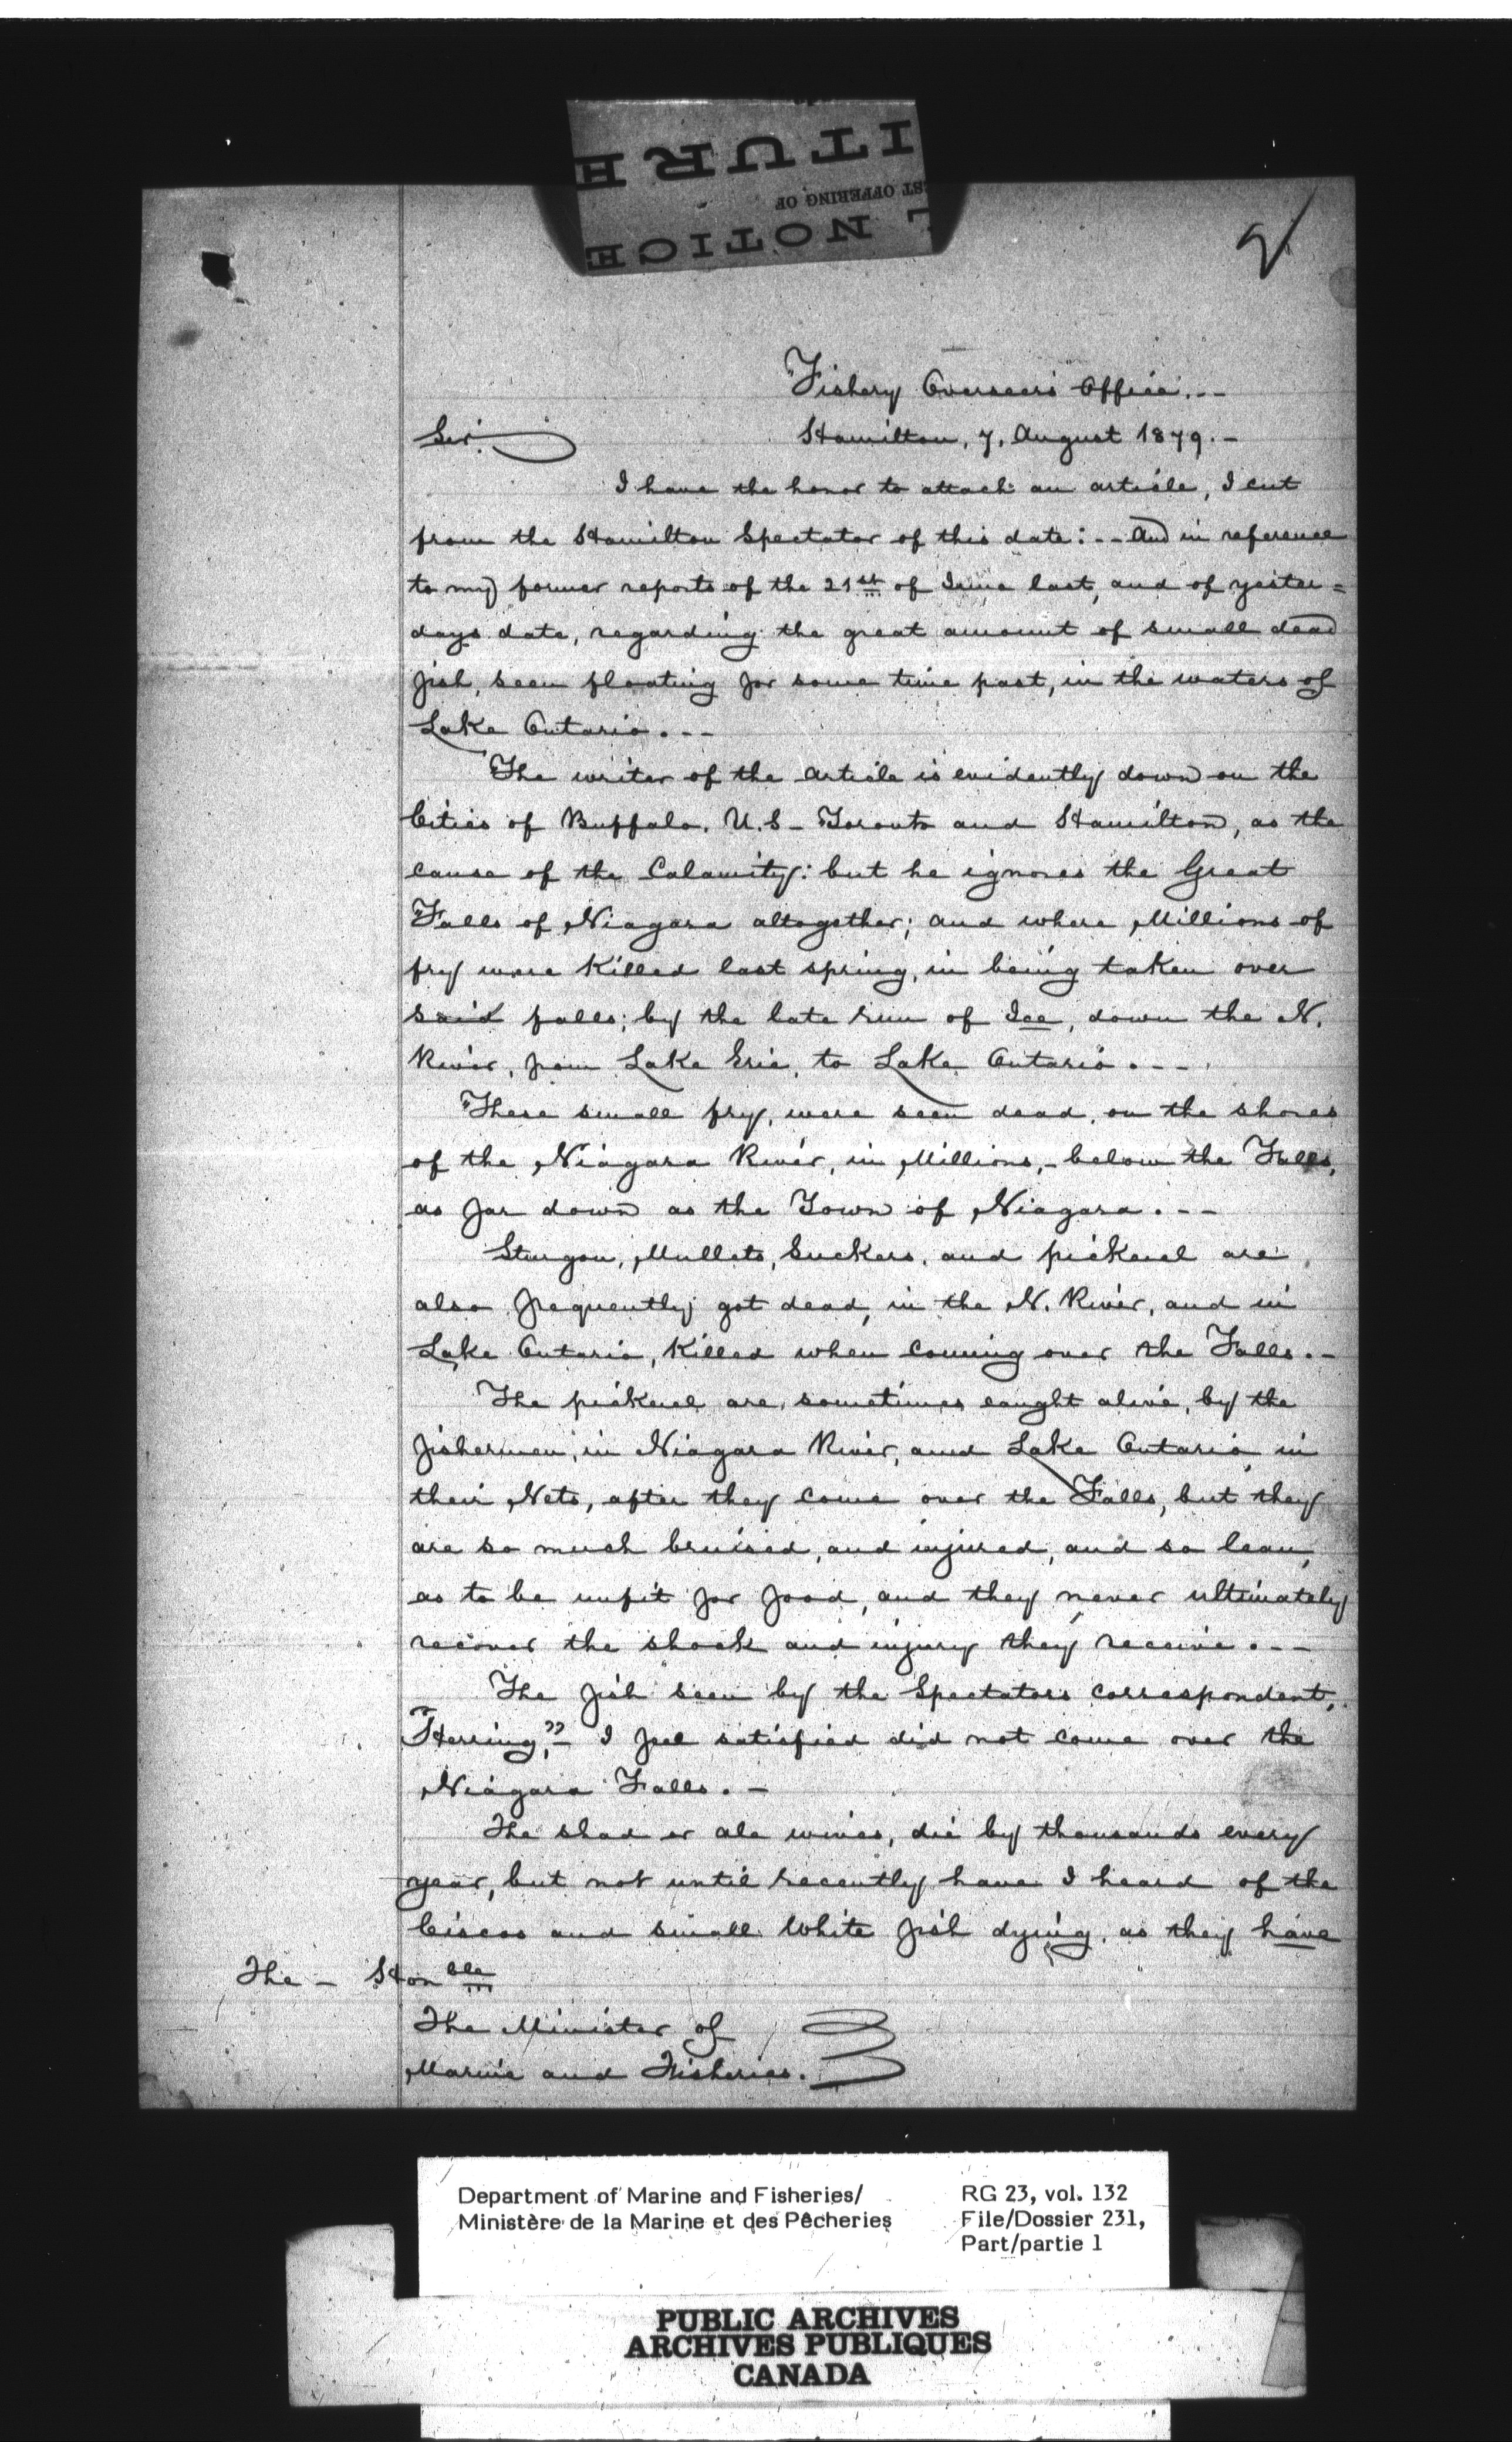 ITURE
ST OFFERING OF
L NOTICE
Fishery Overseers Office.--
Sir Hamilton, 7, August 1879.-
I have the honor to attach an article, I cut
from the Hamilton Spectator of this date:-- And in reference
to my former reports of the 21st of June last, and of yester=
days date, regarding the great amount of small dead
fish, seen floating for some time past, in the waters of
Lake Ontario.--
The writer of the article is evidently down on the
Cities of Buffalo. U.S - Toronto and Hamilton, as the
cause of the Calamity: but he ignores the Great
Falls of Niagara altogether; and where Millions of
fry were Killed last spring, in being taken over
said falls; by the late run of Ice, down the N.
River, from Lake Erie, to Lake Ontario.---
These small fry, were seen dead, on the shores
of the Niagara River, in Millions,- below the Falls,
as far down as the Town of Niagara.--
Sturgon, Mullets, Suckers, and pickerel are
also frequently got dead, in the N. River, and in
Lake Ontario, Killed when coming over the Falls.-
The pickerel are, sometimes caught alive, by the
fishermen, in Niagara River, and Lake Ontario, in
their Nets, after they come over the Falls, but they
are so much bruised, and injured, and so lean,
as to be unfit for food, and they never ultimately
recover the shock and injury they receive.--
The fish seen by the Spectators correspondent,
"Herring,"- I feel satisfied did not come over the
Niagara Falls.-
The shad or ale wives, die by thousands every
year, but not until recently have I heard of the
Ciscos and small White fish dying, as they have
The - Honble
The Minister of
Marine and Fisheries.
Department of Marine and Fisheries/
Ministère de la Marine et des Pêcheries
RG 23, vol. 132
File/Dossier 231,
Part/partie 1
PUBLIC ARCHIVES
ARCHIVES PUBLIQUES
CANADA